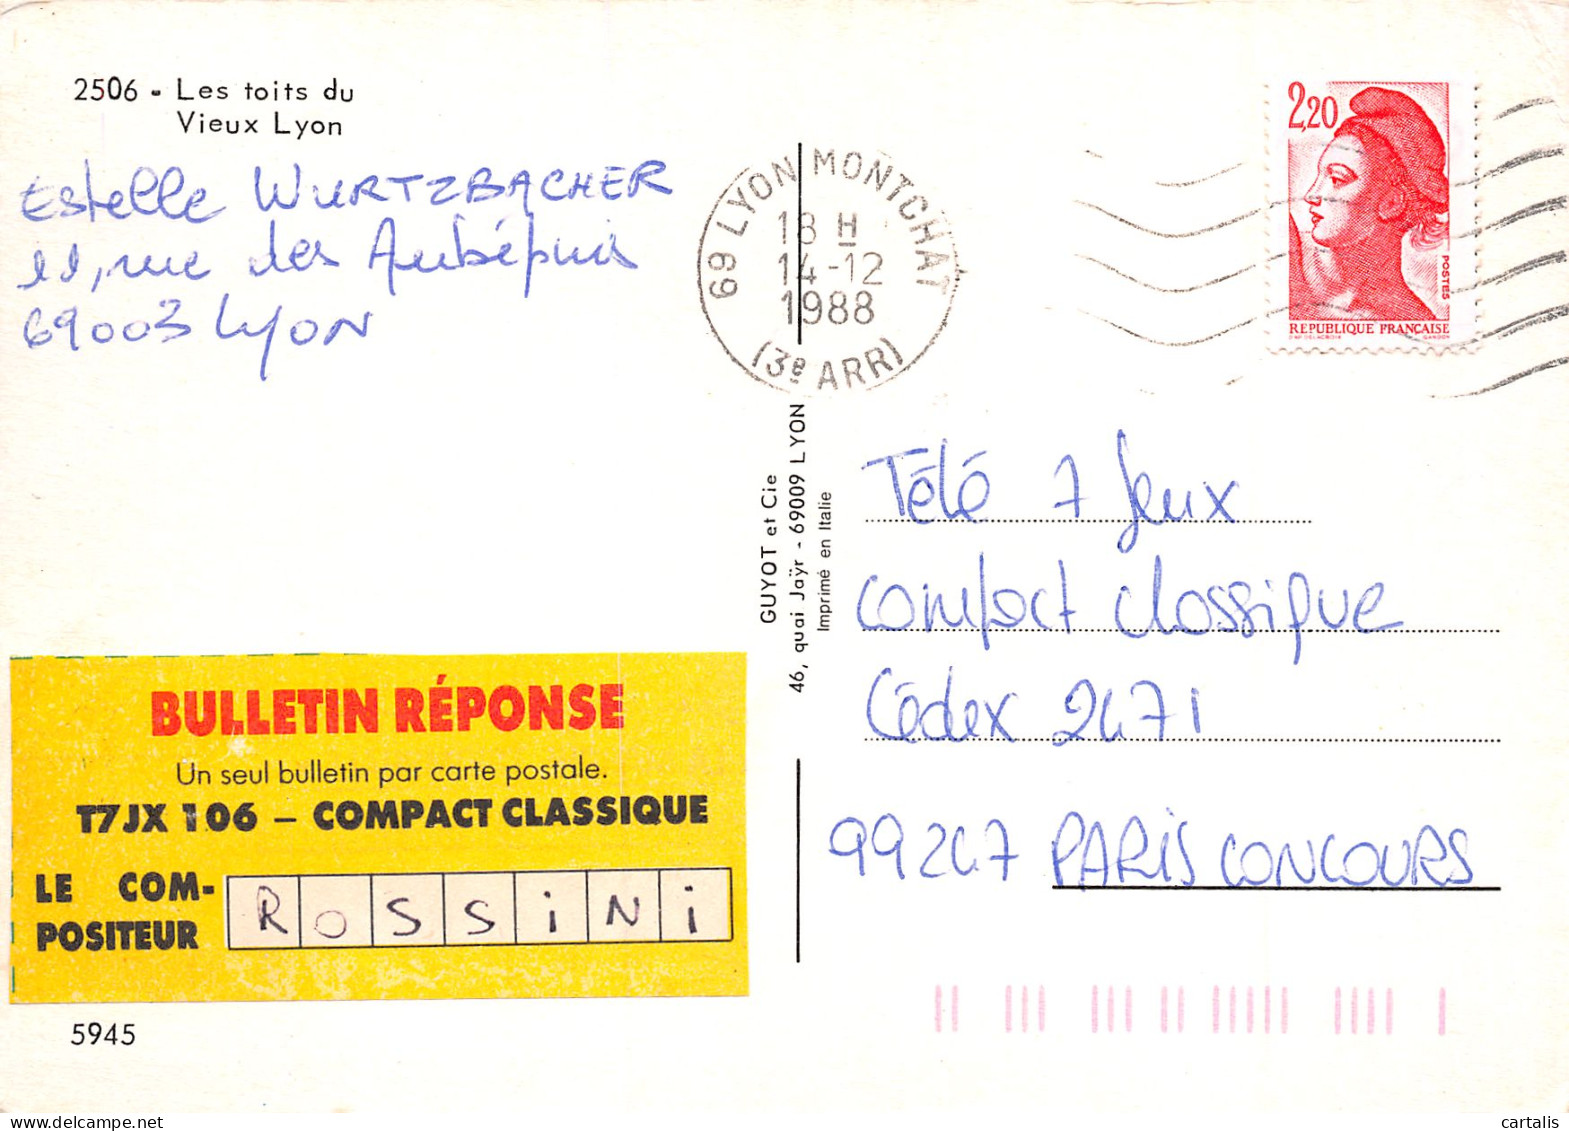 2506 - Les toits du
Vieux Lyon
Estelle WURTZBACHER
11, rue des Aubépins
69003 Lyon
69 LYON MONTCHAT
18 H
14-12
1988
(3e ARR)
2,20
POSTES
REPUBLIQUE FRANÇAISE
D'AP. DELACROIX GANDON
GUYOT et Cie
46, quai Jaÿr - 69009 LYON
Imprimé en Italie
Télé 7 Jeux
Compact classique
Cédex 2471
99247 PARIS CONCOURS
BULLETIN RÉPONSE
Un seul bulletin par carte postale.
T7JX 106 – COMPACT CLASSIQUE
LE COM-
POSITEUR
ROSSiNi
5945
cartalis